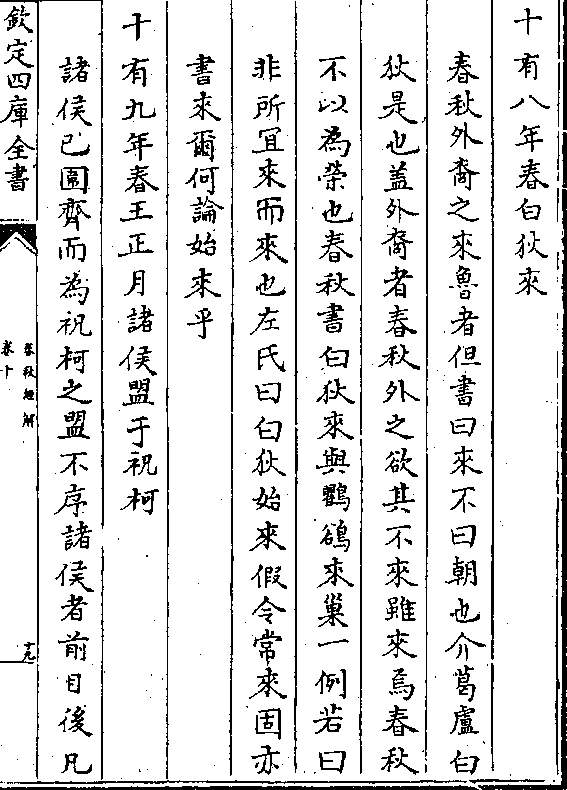 十有八年春白狄來
春秋外裔之來魯者但書曰來不曰朝也介葛盧白
狄是也盖外裔者春秋外之欲其不來雖來焉春秋
不以為榮也春秋書白狄來與鸜鵒來巢一例若曰
非所宜來而來也左氏曰白狄始來假令常來固亦
書來爾何論始來乎
十有九年春王正月諸侯盟于祝柯
諸侯已圍齊而為祝柯之盟不序諸侯者前目後凡
欽定四庫全書
春秋經解
卷十
十九